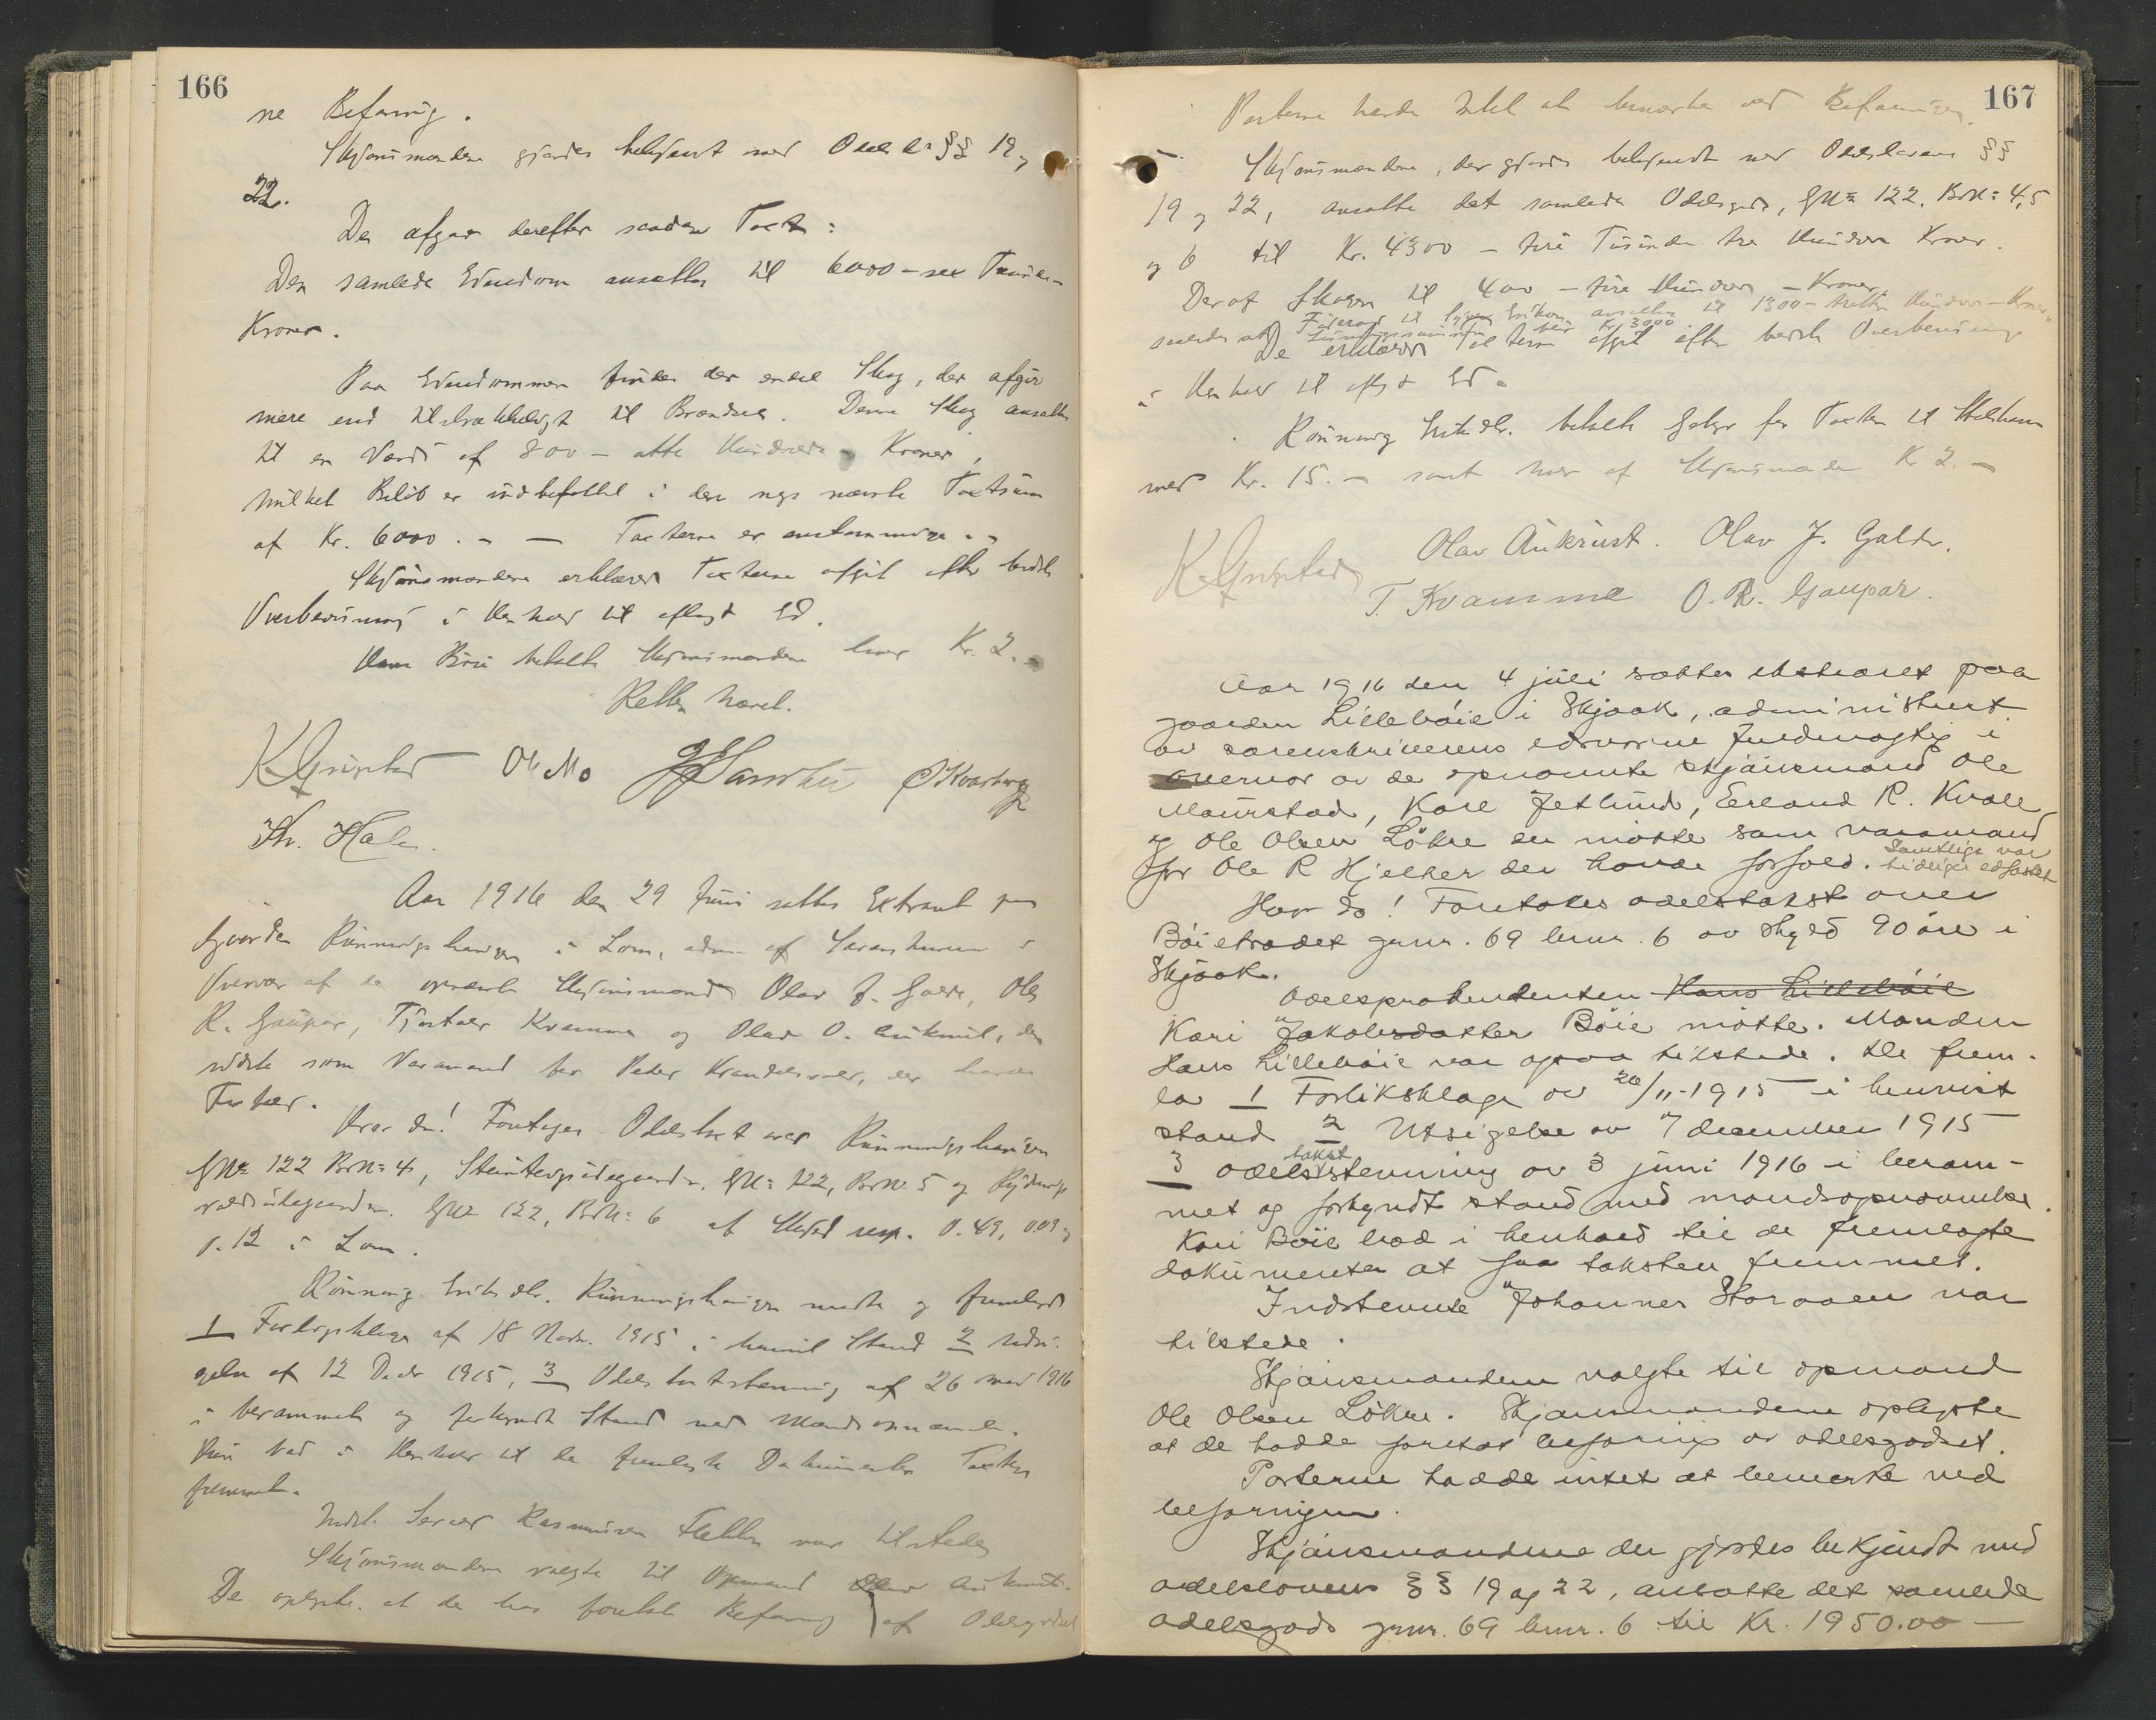 166
ne Befaring.
Skjønsmændene gjordes bekjent med Odelsl. §§ 19 og
22.
De afgav derefter saadan Taxt:
Den samlede Eiendom ansættes til 6000 – sex Tusinde –
Kroner.
Paa Eiendommen findes der endel Skog, der afgir
mere end tilstrækkeligt til Brændsel. Denne Skog ansættes
til en Værdi af 800 – otte Hundrede – Kroner,
hvilket Beløb er indbefattet i den nys nævnte Taxtsum
af Kr. 6000. – — Taxterne er enstemmige.
Skjønsmændene erklæred Taxterne afgit efter bedste
Overbevisning i Henhold til aflagt Ed.
Hans Böie betalte Skjønsmændene hver Kr. 2.–
Retten hævet.
K Grinstad Ol. Mo
Th. Hale.
Aar 1916 den 29 Juni sattes Extraret paa
Gaarden Rünningshaugen i Lom, adm. af Sorenskriveren i
Overvær af de opnævnte Skjønsmænd Olav J. Galde, Ole
R. Gaupar, Tjøstolv Kvamme og Olav O. Aukrust, den
sidste som Varamand for Peder, der havde
Forfald.
Hvor da! Foretoges Odelstaxt over Rünningshaugen
GNo 122 BrNo 4, GNo 122, BrNo 5 og
GNo 122, BrNo 6 af Skyld resp. 0.49, 0.09 og
0.12 i Lom.
Rönnaug Eriksdtr. Rünningshaugen mødte og fremlagde
1 Forligsklage af 18 Novbr. 1915 i henvist Stand 2 Udsi-
gelse af 12 Decbr 1915, 3 Odelstaxtstevning af 26 mai 1916
i berammet og forkyndt Stand med Mandsopnævnelse.
Hun bad i Henhold til de fremlagte Dokumenter Taxten
fremmet.
Indst. Rasmusen Flekken var tilstede.
Skjønsmændene valgte til Opmand Olav Aukrust.
De oplyste at de har foretat Befaring af Odelsgodset
167
Parterne havde Intet at bemærke ved Befaringen.
Skjønsmændene, der gjordes bekjendt med Odelslovens §§
19 og 22, ansatte det samlede Odelsgods, GNo 122, BrNo 4, 5
og 6 til Kr. 4300 – fire Tusinde tre Hundrede Kroner.
Deraf Skogen til 400 – fire Hundrede – Kroner,
Föderaad til ansættes til 1300 – tretten Hundrede – Kroner
saaledes at Løsningssummen blir Kr 3000
De erklæred Taxterne afgit efter bedste Overbevisning
i Henhold til aflagt Ed.
Rönnaug Eriksdtr. betalte Gebyr for Taxten til Statskassen
med Kr. 15. – samt hver af Skjønsmændene Kr 2. –
K Grinstad Olav Aukrust. Olav J. Galde.
T. Kvamme O. R. Gaupar.
Aar 1916 den 4 juli sættes ekstraret paa
gaarden Lilleböie i Skjaak, administrert
av sorenskriverens edsvorne fuldmægtig i
overvær av de opnævnte skjönsmænd Ole
Maurstad, Kare Jetlund, Erland R. Kvale
og Ole Olsen Lökre der mötte som varamand
for Ole R Hjelker der havde forfald. Samtlige var
tidligere edfæstet
Hvor da! Foretokes odelstakst over
Böietrædet gnr. 69 brnr. 6 av skyld 90 öre i
Skjaak.
Odelsprætendenten Hans Lilleböie
Kari Jakobsdatter Böie mötte. Manden
Hans Lilleböie var ogsaa tilstede. De frem-
la 1 Forliksklage av 20/11-1915 i henvist
stand 2 Utsigelse av 7 december 1915
3 odelstakststevning av 3 juni 1916 i beram-
met og forkyndt stand med mandsopnævnelse.
Kari Böie bad i henhold til de fremlagte
dokumenter at faa taksten fremmet.
Indstevnte Johannes Storaaen var
tilstede.
Skjönsmændene valgte til opmand
Ole Olsen Lökre. Skjönsmændene oplyste
at de hadde foretat befaring av odelsgodset.
Parterne hadde intet at bemerke ved
befaringen.
Skjönsmændene der gjordes bekjendt med
odelslovens §§ 19 og 22, ansatte det samlede
odelsgods gnr. 69 brnr. 6 til Kr. 1950.00 —